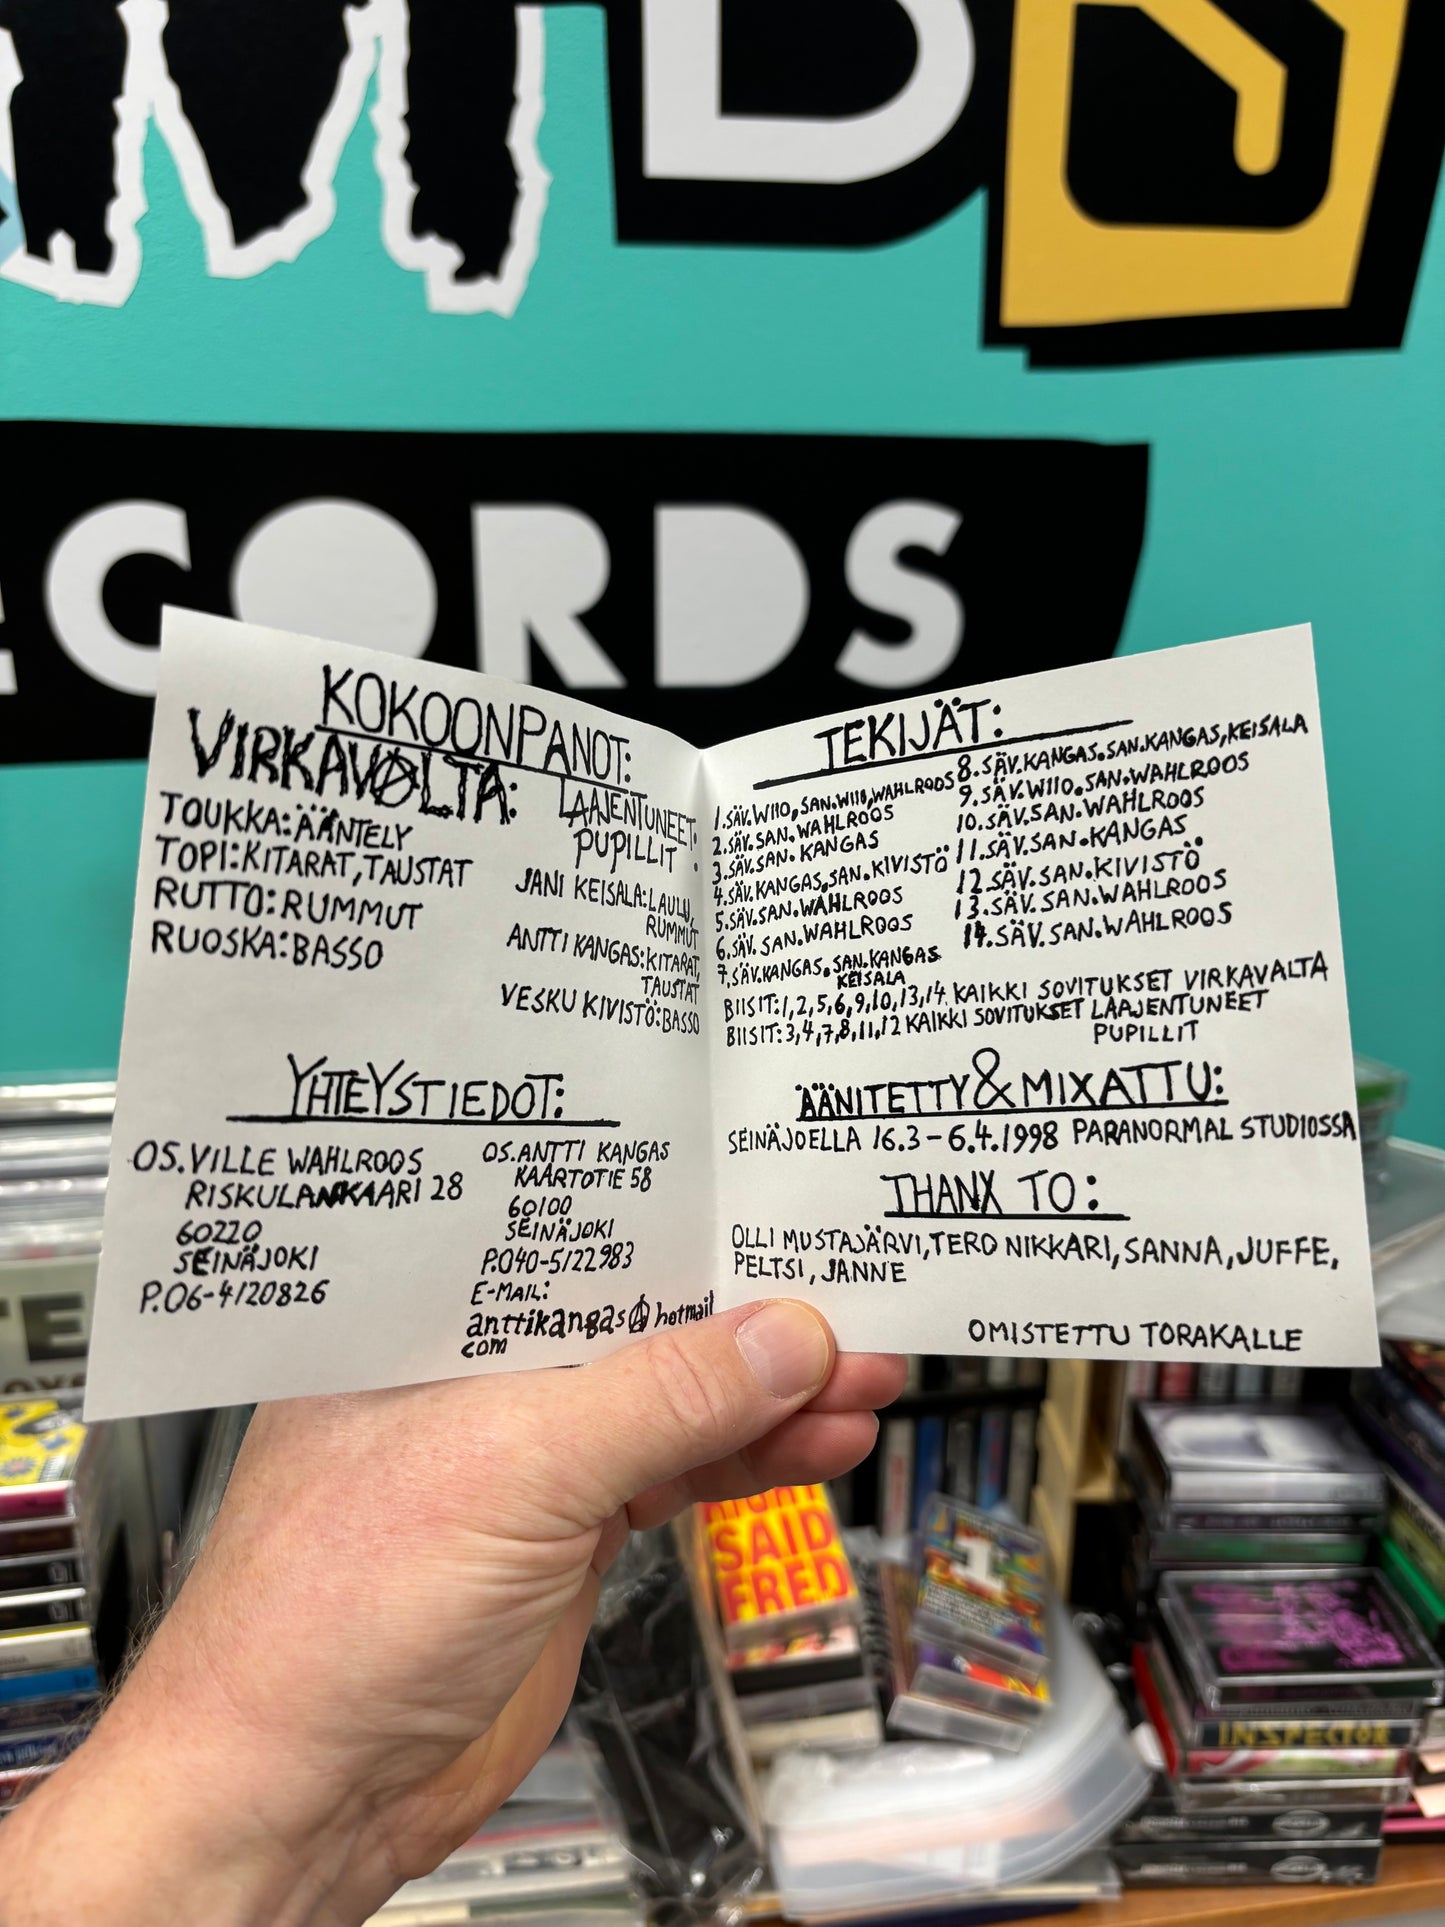 RECORDS
KOKOONPANOT:
VIRKAVALTA:
TOUKKA:ÄÄNTELY
TOPI:KITARAT,TAUSTAT
RUTTO:RUMMUT
RUOSKA:BASSO
LAAJENTUNEET
PUPILLIT:
JANI KEISALA:LAULU,
RUMMUT
ANTTI KANGAS:KITARAT,
TAUSTAT
VESKU KIVISTÖ:BASSO
YHTEYSTIEDOT:
OS.VILLE WAHLROOS
RISKULANKAARI 28
60220
SEINÄJOKI
P.06-4120826
OS.ANTTI KANGAS
KAARTOTIE 58
60100
SEINÄJOKI
P.040-5122983
E-MAIL:
anttikangas@hotmail
com
TEKIJÄT:
1.SÄV.WIIO,SAN.WIIO,WAHLROOS
2.SÄV.SAN.WAHLROOS
3.SÄV.SAN.KANGAS
4.SÄV.KANGAS,SAN.KIVISTÖ
5.SÄV.SAN.WAHLROOS
6.SÄV.SAN.WAHLROOS
7.SÄV.KANGAS.SAN.KANGAS
KEISALA
8.SÄV.KANGAS.SAN.KANGAS,KEISALA
9.SÄV.WIIO.SAN.WAHLROOS
10.SÄV.SAN.WAHLROOS
11.SÄV.SAN.KANGAS
12.SÄV.SAN.KIVISTÖ
13.SÄV.SAN.WAHLROOS
14.SÄV.SAN.WAHLROOS
BIISIT:1,2,5,6,9,10,13,14 KAIKKI SOVITUKSET VIRKAVALTA
BIISIT:3,4,7,8,11,12 KAIKKI SOVITUKSET LAAJENTUNEET
PUPILLIT
ÄÄNITETTY&MIXATTU:
SEINÄJOELLA 16.3-6.4.1998 PARANORMAL STUDIOSSA
THANX TO:
OLLI MUSTAJÄRVI,TERO NIKKARI,SANNA,JUFFE,
PELTSI,JANNE
OMISTETTU TORAKALLE
SAID
FRED
INSPECTOR